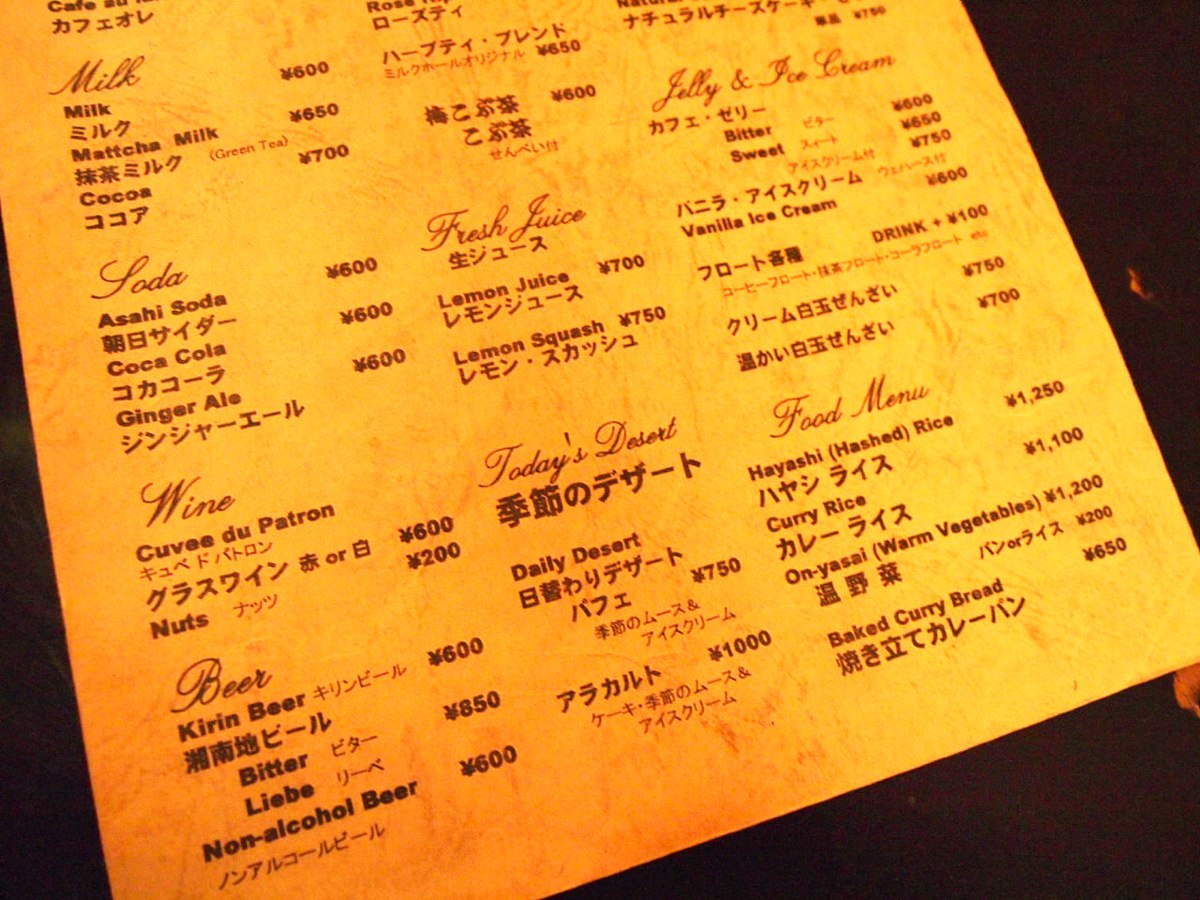 Cafe au
カフェオレ
Milk
Milk ¥600
ミルク
Mattcha Milk ¥650
抹茶ミルク (Green Tea)
Cocoa ¥700
ココア
Soda
Asahi Soda ¥600
朝日サイダー
Coca Cola ¥600
コカコーラ
Ginger Ale ¥600
ジンジャーエール
Wine
Cuvee du Patron
キュベ ド パトロン
グラスワイン 赤 or 白 ¥600
Nuts ナッツ ¥200
Beer
Kirin Beer キリンビール ¥600
湘南地ビール ¥850
Bitter ビター
Liebe リーベ
Non-alcohol Beer ¥600
ノンアルコールビール
Rose
ローズティ
ハーブティ・ブレンド ¥650
ミルクホールオリジナル
梅こぶ茶 ¥600
こぶ茶
せんべい付
Fresh Juice
生ジュース
Lemon Juice ¥700
レモンジュース
Lemon Squash ¥750
レモン・スカッシュ
Today's Desert
季節のデザート
Daily Desert
日替わりデザート
パフェ ¥750
季節のムース&
アイスクリーム
アラカルト ¥1000
ケーキ・季節のムース&
アイスクリーム
ナチュラルチーズケーキ・
単品 ¥750
Jelly & Ice Cream
カフェ・ゼリー
Bitter ビター ¥600
Sweet スィート ¥650
アイスクリーム付 ¥750
バニラ・アイスクリーム ウェハース付
Vanilla Ice Cream ¥600
フロート各種 DRINK + ¥100
コーヒーフロート・抹茶フロート・コーラフロート etc
クリーム白玉ぜんざい ¥750
温かい白玉ぜんざい ¥700
Food Menu
Hayashi (Hashed) Rice ¥1,250
ハヤシ ライス
Curry Rice ¥1,100
カレー ライス
On-yasai (Warm Vegetables) ¥1,200
温 野 菜 パンorライス ¥200
Baked Curry Bread ¥650
焼き立てカレーパン